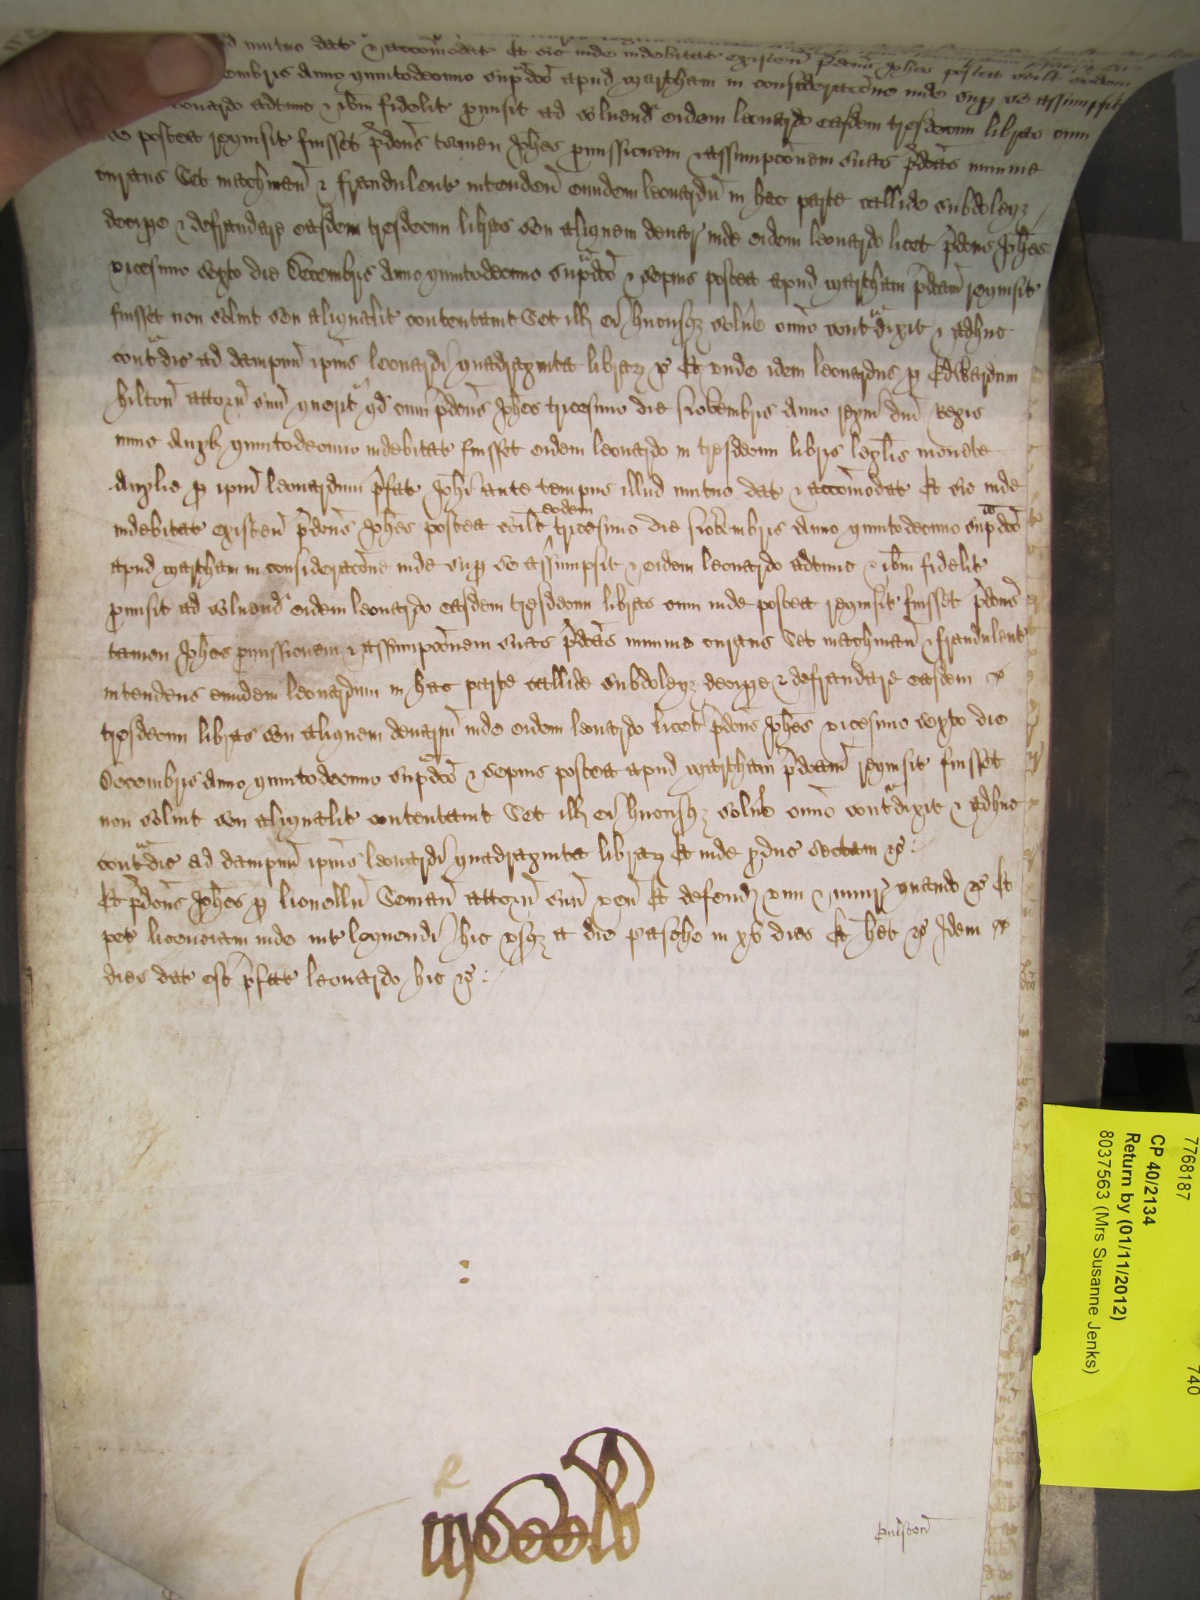 mutuo dat & accomodat Et sic inde indebitat existen p̄dcus Joh̄es postea scilt eodem
embris Anno quintodecimo sup̄dco apud Martham in consideracōne inde sup se assumpsit
eonardo adtunc & ib̄m fidelit promisit ad solvend eidem leonardo easdem tresdecim libras cum
postea requisit fuisset p̄dcus tamen Joh̄es pmissionem & assumpcōnem suas p̄dcas minime
curans Set machinan & fraudulent intenden eundem leonardū in hac parte callide subdoleqz
decipe & defraudare easdem tresdecim libras seu aliquem denar inde eidem leonardo licet p̄dcus Joh̄es
vicesimo sexto die Decembris Anno quintodecimo sup̄dco & sepius postea apud Martham p̄dcam requisit
fuisset non solvit seu aliqualit contentavit Set ill ei hucusqz solve omīo contradixit & adhuc
contradic ad dampnū ipius leonardi quadraginta librarz &c Et unde idem leonardus p Edwardum
hilton attorn suū querit qd cum p̄dcus Joh̄es tricesimo die Novembris Anno regni dni Regis
nunc Anglie quintodecimo indebitat fuisset eidem leonardo in tresdecim libris legalis monete
Anglie p ipm leonardum p̄fat Joh̄i ante tempus illud mutuo dat & accomodat Et sic inde
indebitat existen p̄dcus Joh̄es postea scilt eodem tricesimo die Novembris Anno quintodecimo sup̄dco
apud Martham in consideracōne inde sup se assumpsit & eidem leonardo adtunc & ib̄m fidelit
promisit ad solvend eidem leonardo easdem tresdecim libras cum inde postea requisit fuisset p̄dcus
tamen Joh̄es pmissionem & assumpcōnem suas p̄dcas minime curans Set machinan & fraudulent
intendens eundem leonardum in hac parte callide subdoleqz decipe & defraudare easdem
tresdecim libras seu aliquem denariū inde eidem leonardo licet p̄dcus Joh̄es vicesimo sexto die
Decembris Anno quintodecimo sup̄dco & sepius postea apud Martham p̄dcam requisit fuisset
non solvit seu aliqualit contentavit Set ill ei hucusqz solve omīo contradixit & adhuc
contradic ad dampnū ipius leonardi quadraginta librarz Et inde pduc sectam &c
Et p̄dcus Joh̄es p lionellū attorn suū ven Et defend vim & iniur quando &c Et
pet licenciam inde int loquendi hic usqz a die pasche in xv dies Et het &c Idem
dies dat est p̄fat leonardo hic &c
7768187
740
CP 40/2134
Return by (01/11/2012)
8037563 (Mrs Susanne Jenks)